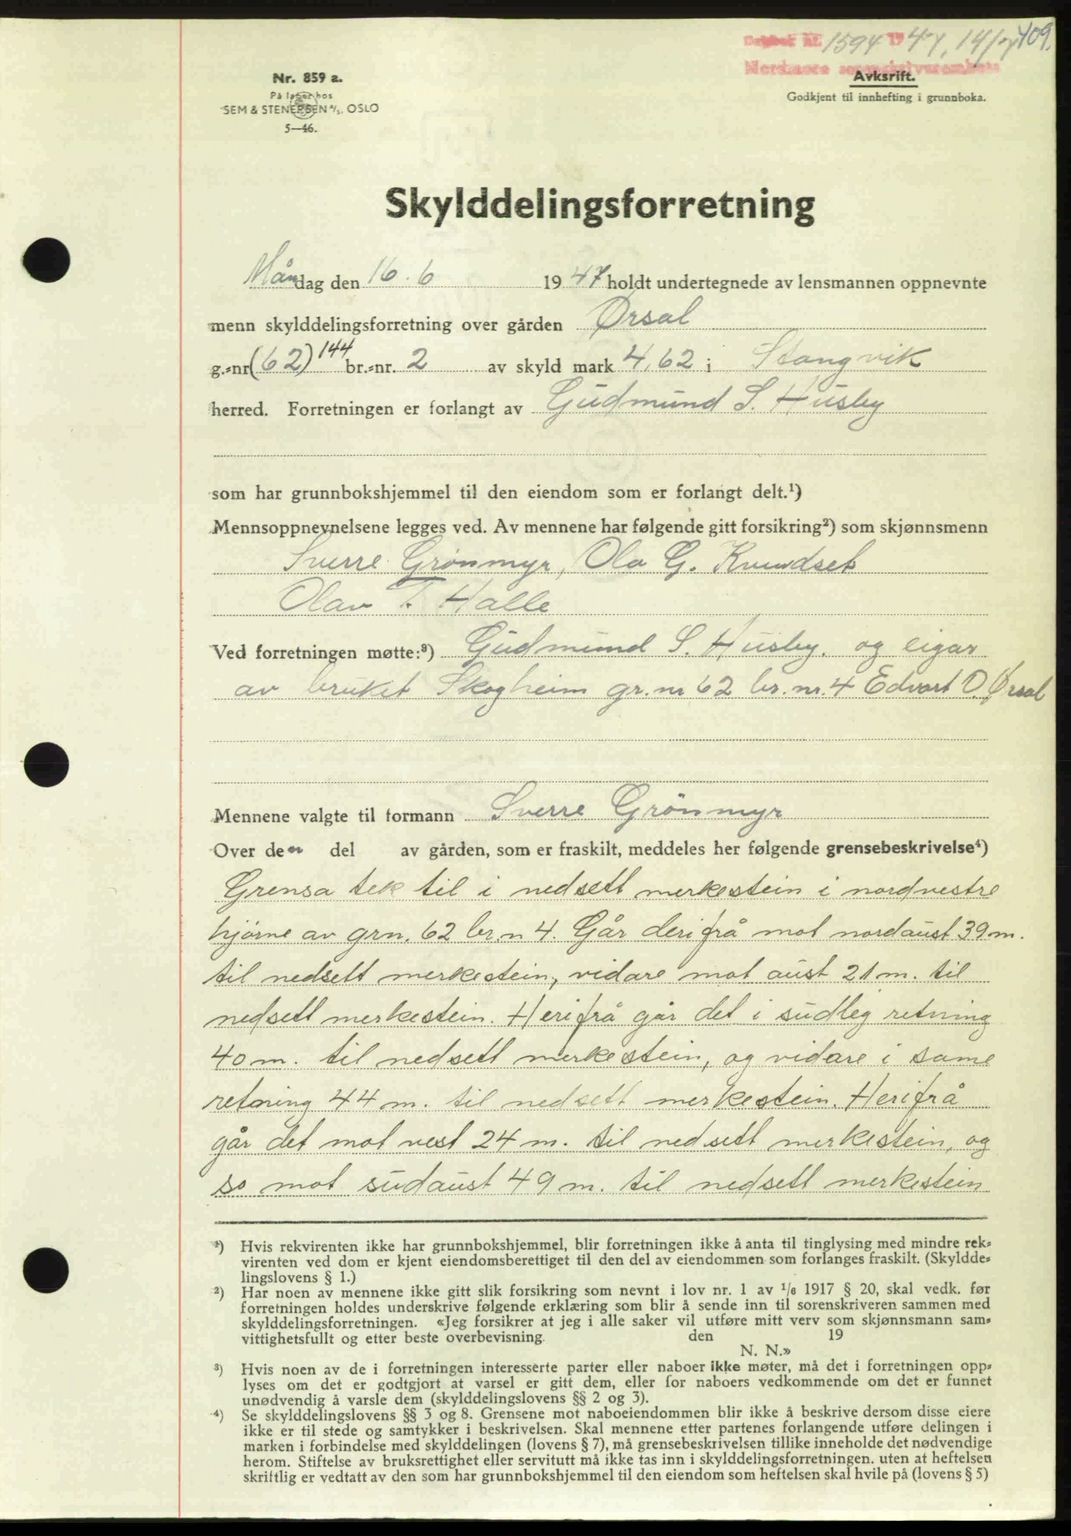 Dagbok nr. 1594 1947, 14/7 409.
Nordmøre sorenskriverembete
Nr. 859 a.
På lager hos
SEM & STENERSEN A/S. OSLO
5—46.
Avksrift.
Godkjent til innhefting i grunnboka.
Skylddelingsforretning
Måndag den 16.6 1947 holdt undertegnede av lensmannen oppnevnte
menn skylddelingsforretning over gården Ørsal
g.-nr (62) 144 br.-nr. 2 av skyld mark 4,62 i Stangvik
herred. Forretningen er forlangt av Gudmund S. Husby
som har grunnbokshjemmel til den eiendom som er forlangt delt.¹)
Mennsoppnevnelsene legges ved. Av mennene har følgende gitt forsikring²) som skjønnsmenn
Sverre Grønmyr, Ola G. Kvendset
Olav T. Halle
Ved forretningen møtte:³) Gudmund S. Husby. og eigar
av bruket Skogheim gr. nr 62 br. nr. 4 Edvart O. Ørsal
Mennene valgte til formann Sverre Grönmyr
Over den del av gården, som er fraskilt, meddeles her følgende grensebeskrivelse⁴)
Grensa tek til i nedsett merkestein i nordvestre
hjörne av grn. 62 br. n 4. Går derifrå mot nordaust 39 m.
til nedsett merkestein, vidare mot aust 21 m. til
nedsett merkestein. Herifrå går det i sudleg retning
40 m. til nedsett merkestein, og vidare i same
retning 44 m. til nedsett merkestein. Herifrå
går det mot vest 24 m. til nedsett merkestein, og
so mot sudaust 49 m. til nedsett merkestein
¹) Hvis rekvirenten ikke har grunnbokshjemmel, blir forretningen ikke å anta til tinglysing med mindre rek-
virenten ved dom er kjent eiendomsberettiget til den del av eiendommen som forlanges fraskilt. (Skyldde-
lingslovens § 1.)
²) Har noen av mennene ikke gitt slik forsikring som nevnt i lov nr. 1 av 1/6 1917 § 20, skal vedk. før
forretningen holdes underskrive følgende erklæring som blir å sende inn til sorenskriveren sammen med
skylddelingsforretningen. «Jeg forsikrer at jeg i alle saker vil utføre mitt verv som skjønnsmann sam-
vittighetsfullt og etter beste overbevisning. den 19
N. N.»
³) Hvis noen av de i forretningen interesserte parter eller naboer ikke møter, må det i forretningen opp-
lyses om det er godtgjort at varsel er gitt dem, eller for naboers vedkommende om det er funnet
unødvendig å varsle dem (skylddelingslovens §§ 2 og 3).
⁴) Se skylddelingslovens §§ 3 og 8. Grensene mot naboeiendommen blir ikke å beskrive dersom disse eiere
ikke er til stede og samtykker i beskrivelsen. Skal mennene etter partenes forlangende utføre delingen i
marken i forbindelse med skylddelingen (lovens § 7), må grensebeskrivelsen tillike inneholde det nødvendige
herom. Stiftelse av bruksrettighet eller servitutt må ikke tas inn i skylddelingsforretningen. uten at heftelsen
skriftlig er vedtatt av den som har grunnbokshjemmel til den eiendom som heftelsen skal hvile på (lovens § 5)